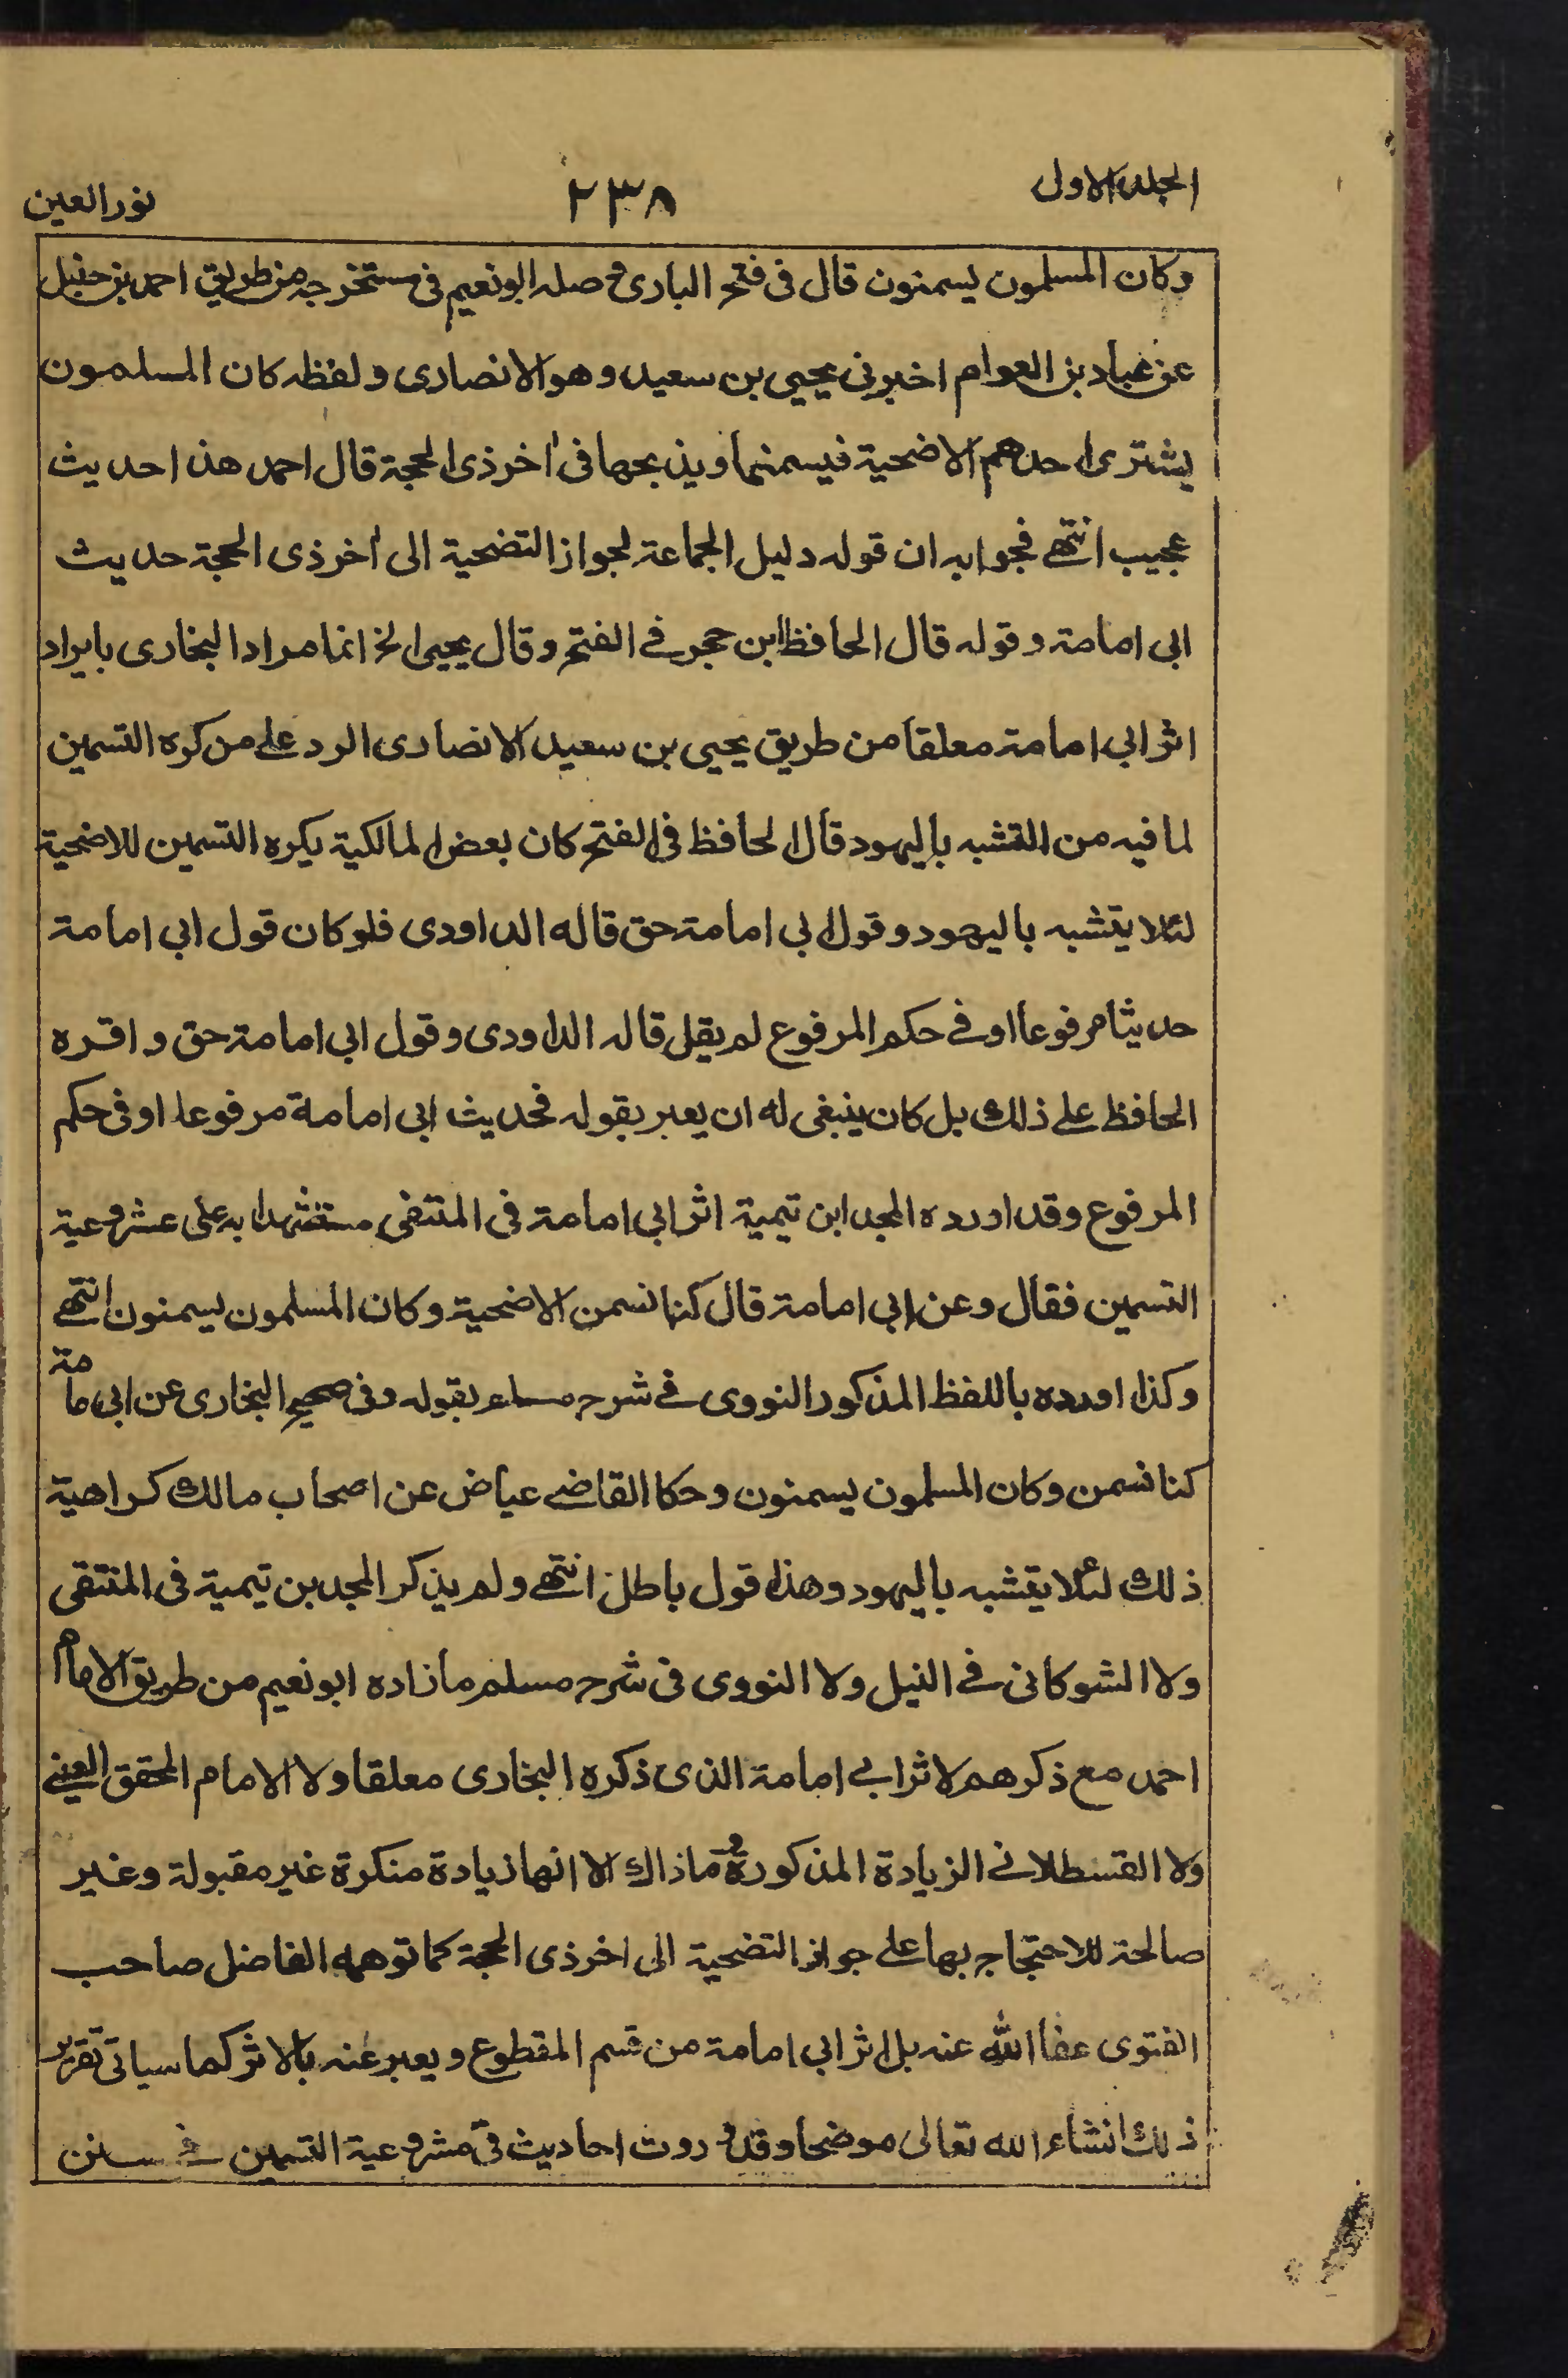 الجلد الاول
٢٣٨
نور العين
وكان المسلمون يسمنون قال في فتح البارى وصله ابونعيم في مستخرجه من طريق احمد بن حنبل
عن عباد بن العوام اخبرني يحيى بن سعيد وهو الانصارى ولفظه كان المسلمون
يشترى احدهم الاضحية فيسمنها ويذبحها في اخر ذى الحجة قال احمد هذا حديث
عجيب انتهى فجوابه ان قوله دليل الجماعة لجواز التضحية الى اخر ذى الحجة حديث
ابى امامة وقوله قال الحافظ ابن حجر في الفتح وقال يحيى الخ انما مراد البخارى بايراد
اثر ابى امامة معلقا من طريق يحيى بن سعيد الانصارى الرد على من كره التسمين
لما فيه من التشبه باليهود قال الحافظ في الفتح كان بعض المالكية يكره التسمين للاضحية
لئلا يتشبه باليهود وقول ابى امامة حق قاله الداودى فلو كان قول ابى امامة
حديثا مرفوعا او في حكم المرفوع لم يقل قاله الداودى وقول ابى امامة حق واقره
الحافظ على ذلك بل كان ينبغى له ان يعبر بقوله فحديث ابى امامة مرفوعا او في حكم
المرفوع وقد اورده المجد ابن تيمية اثر ابى امامة في المنتقى مستشهدا به على مشروعية
التسمين فقال وعن ابى امامة قال كنا نسمن الاضحية وكان المسلمون يسمنون انتهى
وكذا اورده باللفظ المذكور النووى في شرح مسلم بقوله وفي صحيح البخارى عن ابى مامة
كنا نسمن وكان المسلمون يسمنون وحكا القاضى عياض عن اصحاب مالك كراهية
ذلك لئلا يتشبه باليهود وهذا قول باطل انتهى ولم يذكر المجد بن تيمية في المنتقى
ولا الشوكانى في النيل ولا النووى في شرح مسلم ما زاده ابونعيم من طريق الامام
احمد مع ذكرهم لاثر ابى امامة الذى ذكره البخارى معلقا ولا الامام المحقق العينى
ولا القسطلانى الزيادة المذكورة وما ذاك الا انها زيادة منكرة غير مقبولة وغير
صالحة للاحتجاج بها على جواز التضحية الى اخر ذى الحجة كما توهمه الفاضل صاحب
الفتوى عفا الله عنه بل اثر ابى امامة من قسم المقطوع ويعبر عنه بالاثر كما سياتى تقرير
ذلك انشاء الله تعالى موضحا وقد وردت احاديث في مشروعية التسمين في سنن